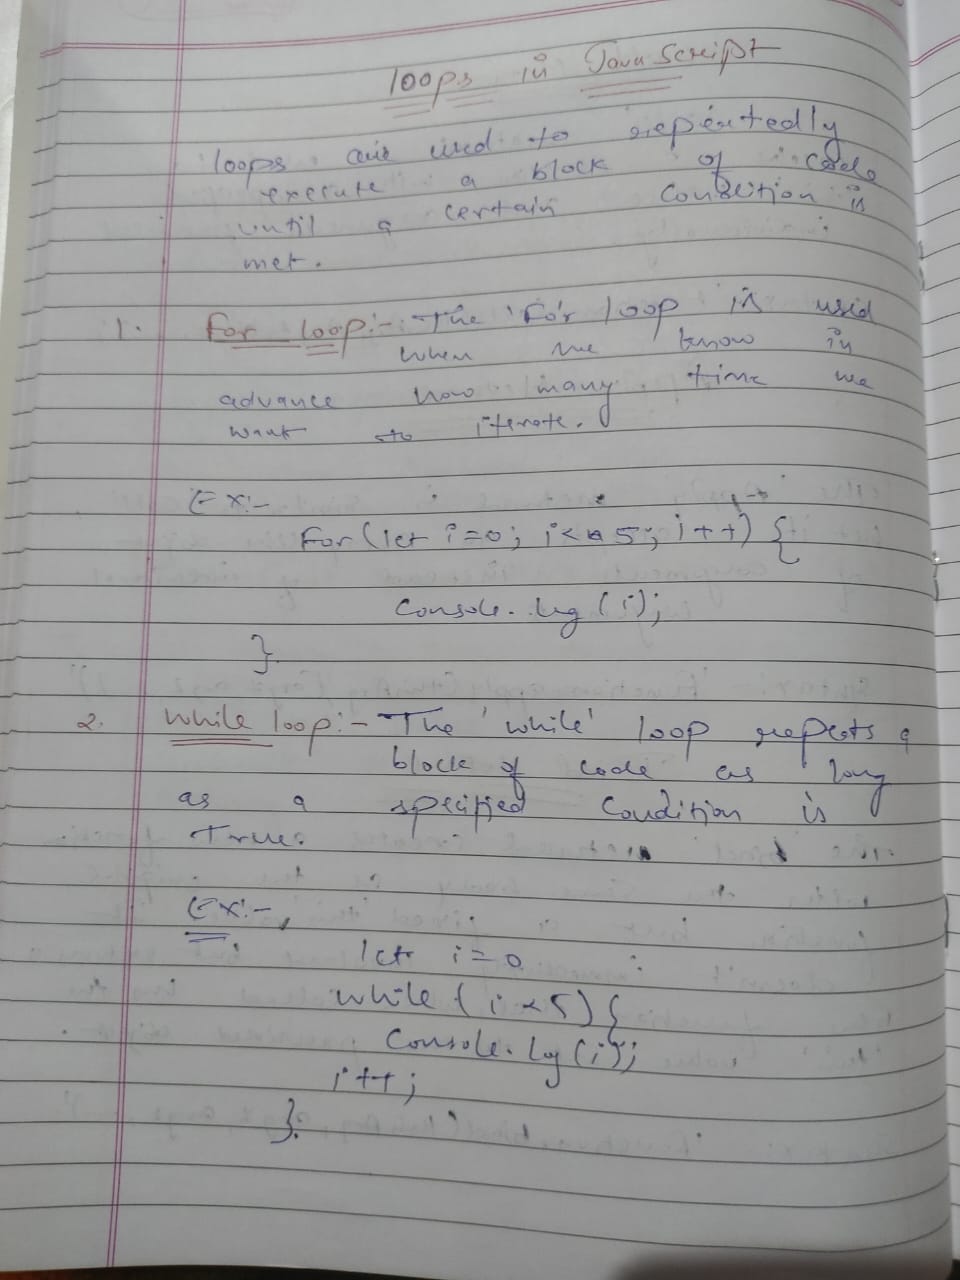 loops in JavaScript
loops are used to repeatedly
execute a block of code
until a certain condition is
met.
1. For loop:- The 'For loop is used
when we know in
advance how many time we
want to iterate.
Ex:-
For(let i=0; i<5; i++) {
Console.log(i);
}
2. While loop:- The 'while' loop repeats a
block of code as long
as a specified condition is
True.
Ex:-
let i=0
while (i<5){
Console.log(i);
i++;
}